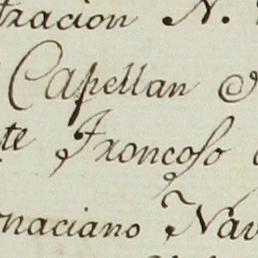 tracion N.
Capellan
te Troncoso
naciano Nav